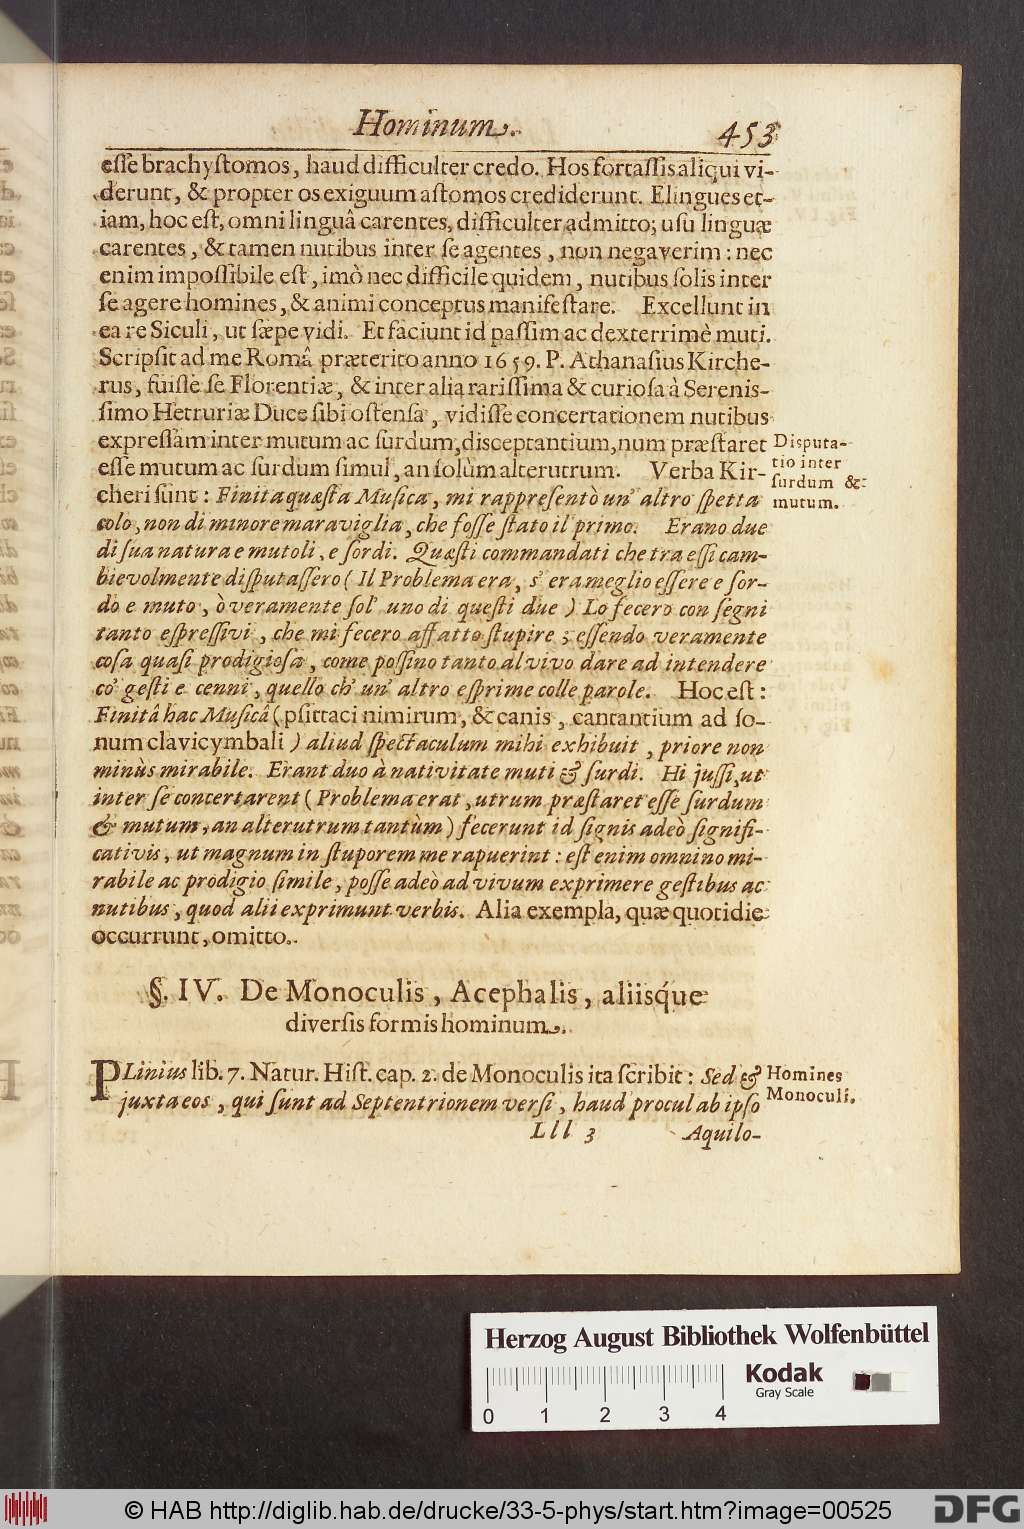 Hominum.
453
esse brachystomos, haud difficulter credo. Hos fortassis aliqui vi-
derunt, & propter os exiguum astomos crediderunt. Elingues et-
iam, hoc est, omni linguâ carentes, difficulter admitto; usu linguæ
carentes, & tamen nutibus inter se agentes, non negaverim: nec
enim impossibile est, imò nec difficile quidem, nutibus solis inter
se agere homines, & animi conceptus manifestare. Excellunt in
ea re Siculi, ut sæpe vidi. Et faciunt id passim ac dexterrimè muti.
Scripsit ad me Româ præterito anno 1659. P. Athanasius Kirche-
rus, fuisse se Florentiæ, & inter alia rarissima & curiosa à Serenis-
simo Hetruriæ Duce sibi ostensa, vidisse concertationem nutibus
expressam inter mutum ac surdum, disceptantium, num præstaret
esse mutum ac surdum simul, an solùm alterutrum. Verba Kir-
cheri sunt: Finita quæsta Musica, mi rappresentò un' altro spetta
colo, non di minore maraviglia, che fosse stato il primo. Erano due
di sua natura e mutoli, e sordi. Quæsti commandati che tra essi cam-
bievolmente disputassero (Il Problema era, s' era meglio essere e sor-
do e muto, ò veramente sol' uno di questi due) Lo fecero con segni
tanto espressivi, che mi fecero affatto stupire; essendo veramente
cosa quasi prodigiosa, come possino tanto al vivo dare ad intendere
co' gesti e cenni, quello ch' un' altro esprime colle parole. Hoc est:
Finitâ hac Musicâ (psittaci nimirum, & canis, cantantium ad so-
num clavicymbali) aliud spectaculum mihi exhibuit, priore non
minùs mirabile. Erant duo à nativitate muti & surdi. Hi jussi, ut
inter se concertarent (Problema erat, utrum præstaret esse surdum
& mutum, an alterutrum tantùm) fecerunt id signis adeò signifi-
cativis, ut magnum in stuporem me rapuerint: est enim omnino mi-
rabile ac prodigio simile, posse adeò ad vivum exprimere gestibus ac
nutibus, quod alii exprimunt verbis. Alia exempla, quæ quotidie
occurrunt, omitto.
Disputa-
tio inter
surdum &
mutum.
§. IV. De Monoculis, Acephalis, aliisque
diversis formis hominum.
PLinius lib. 7. Natur. Hist. cap. 2. de Monoculis ita scribit: Sed &
juxta eos, qui sunt ad Septentrionem versi, haud procul ab ipso
Homines
Monoculi.
Lll 3
Aquilo-
Herzog August Bibliothek Wolfenbüttel
Kodak
Gray Scale
0 1 2 3 4
© HAB http://diglib.hab.de/drucke/33-5-phys/start.htm?image=00525
DFG